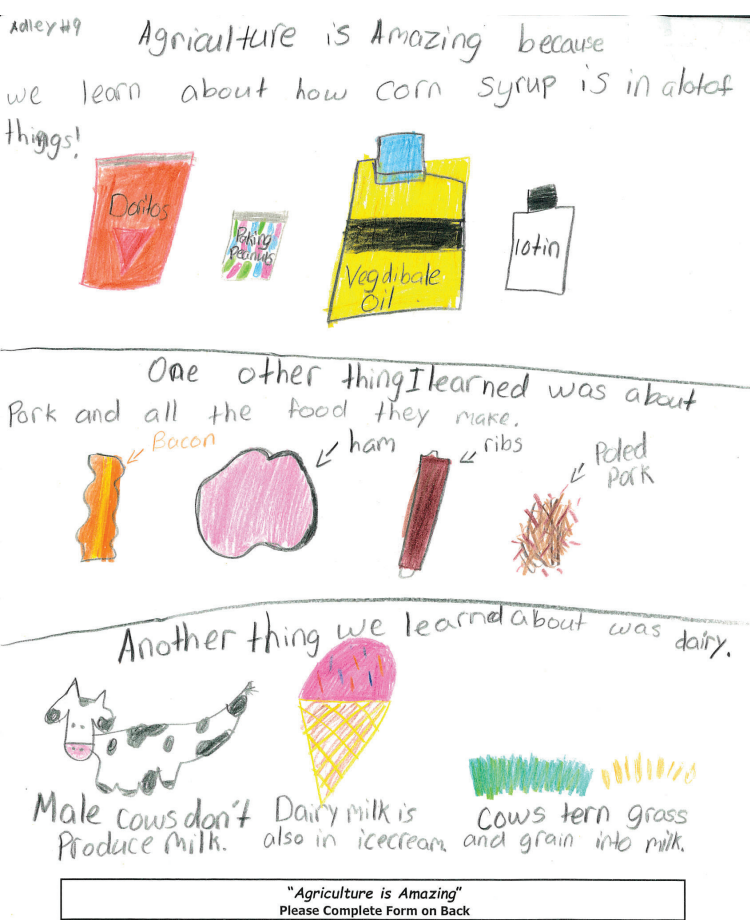 Adley #9
Agriculture is Amazing because
we learn about how corn syrup is in alotof
things!
Doritos
Paking
Peanuts
Vegdibale
Oil
lotin
One other thing I learned was about
Pork and all the food they make.
Bacon
ham
ribs
Poled
Pork
Another thing we learned about was dairy.
Male cows don't
Produce milk.
Dairy milk is
also in icecream.
cows tern grass
and grain into milk.
"Agriculture is Amazing"
Please Complete Form on Back